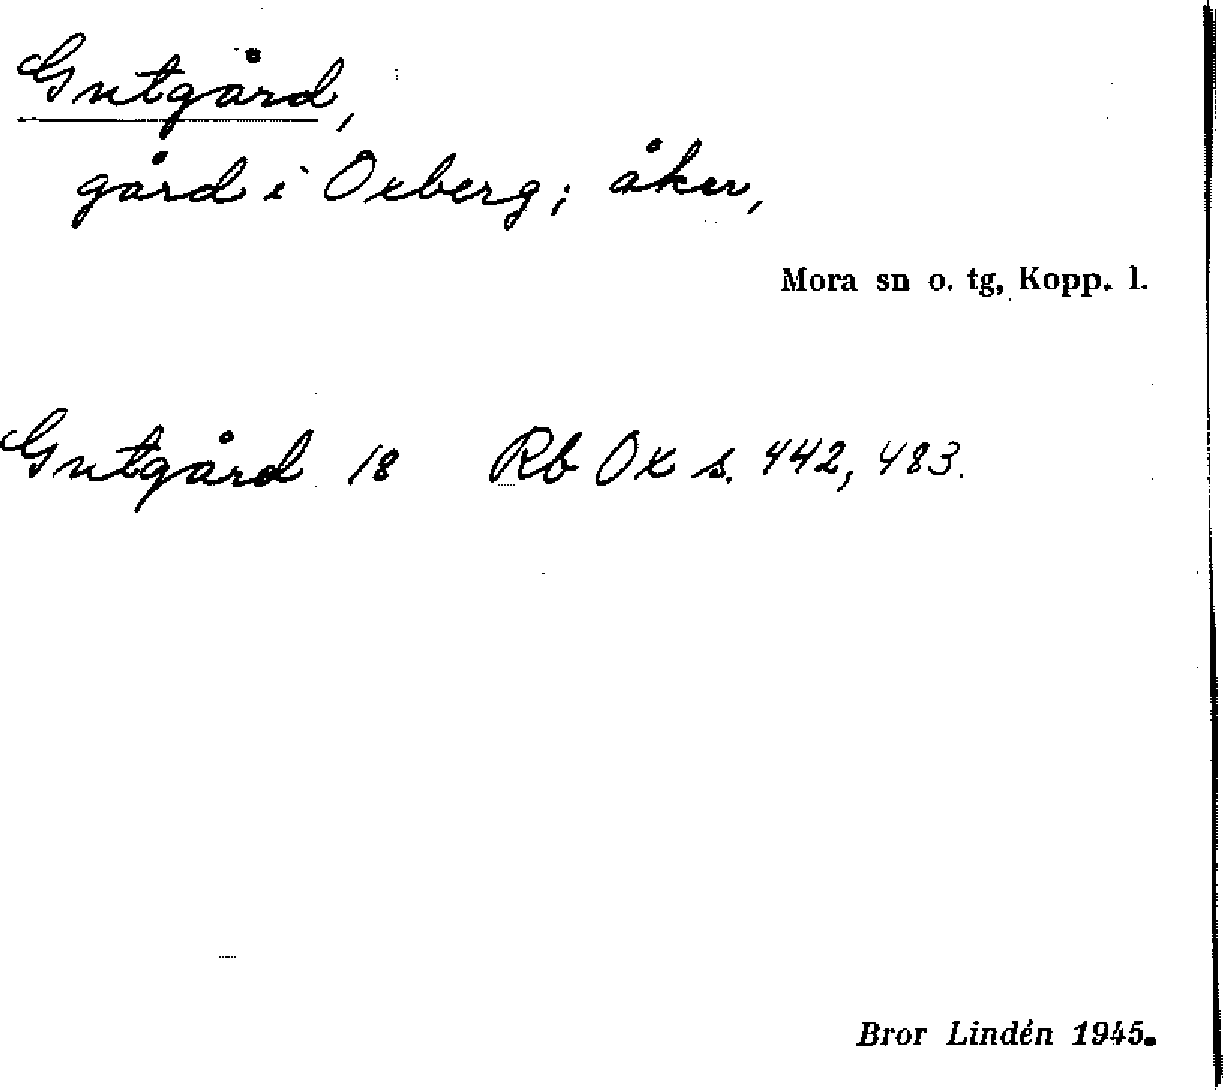 Gutgård,
gård i Oxberg; åker,
Mora sn o. tg, Kopp. l.
Gutgård 18 Rb Ox s. 442, 483.
Bror Lindén 1945.